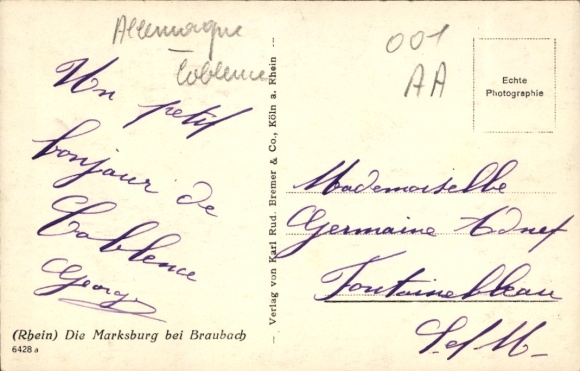 Allemagne
Coblence
001
AA
Echte
Photographie
Un petit
bonjour de
Coblence
Georges
Mademoiselle
Germaine Adnet
Fontainebleau
S. et M.
Verlag von Karl Rud. Bremer & Co., Köln a. Rhein
(Rhein) Die Marksburg bei Braubach
6428 a